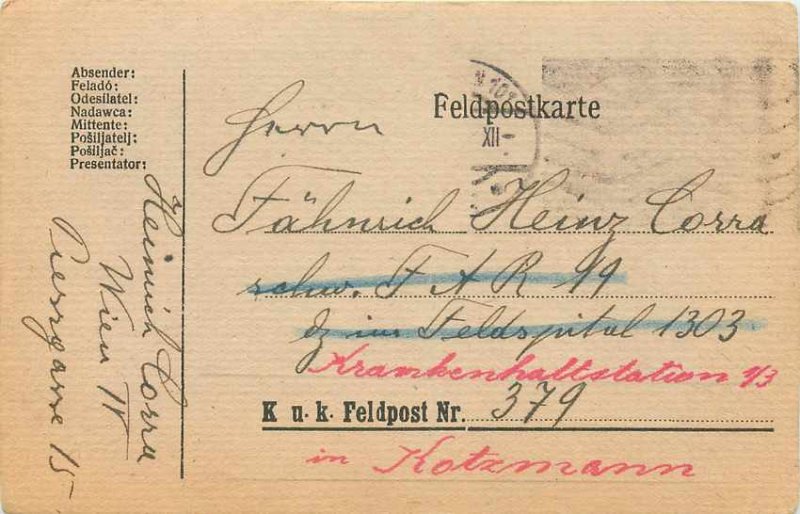 Absender:
Feladó:
Odesílatel:
Nadawca:
Mittente:
Pošiljatelj:
Pošiljač:
Presentator:
Heinrich Corra
Wien IV
Pressgasse 15
Feldpostkarte
XII
Herrn
Fähnrich Heinz Corra
schw. F A R 99
dz im Feldspital 1303
Krankenhaltstation 1/3
K. u. k. Feldpost Nr. 379
in Kotzmann